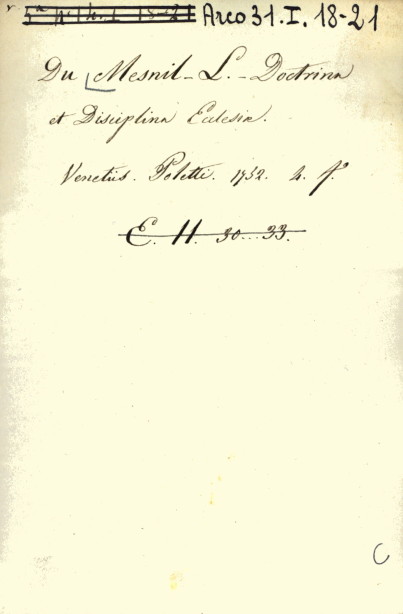 Arco 31. I. 18-21
Du Mesnil - L. - Doctrina
et Disciplina Ecclesiæ.
Venetiis. Poletti. 1752. 4. fº
E. 11. 30...33.
C